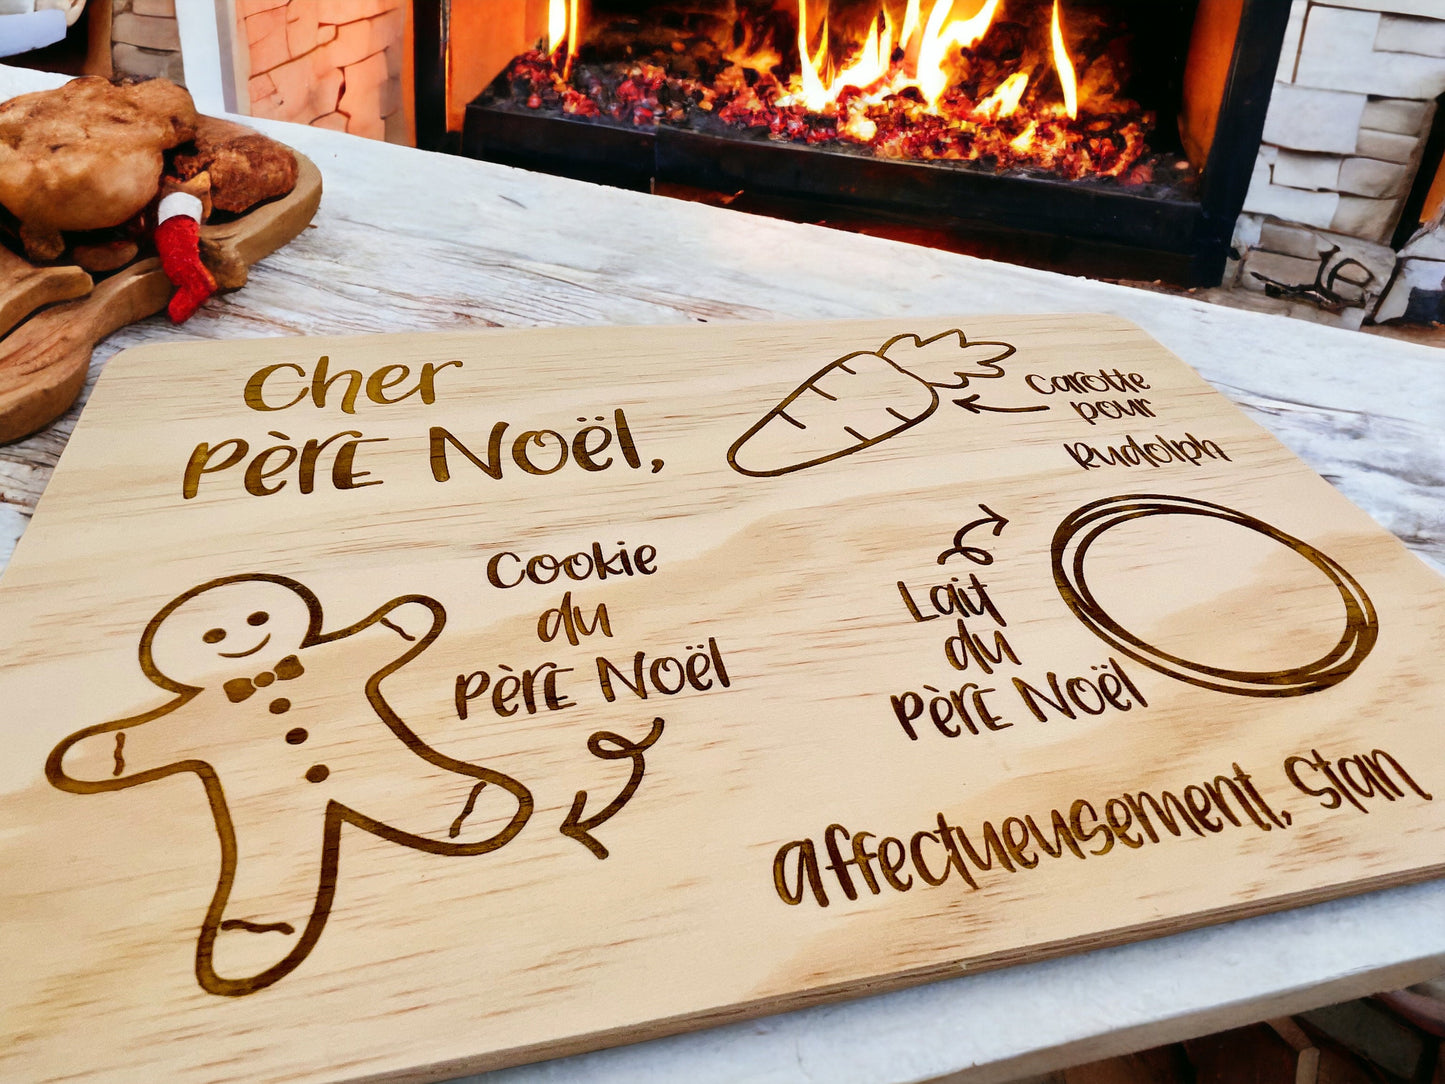 Cher
Père Noël,
Carotte
pour
Rudolph
Cookie
du
Père Noël
Lait
du
Père Noël
Affectueusement, Stan